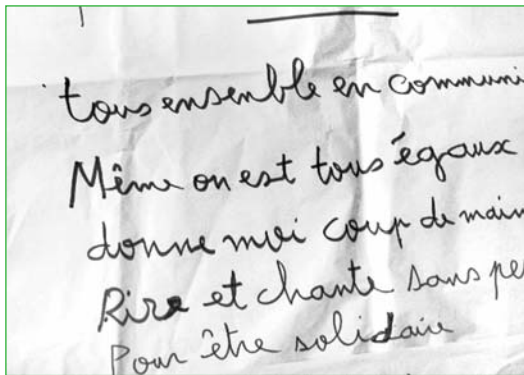 tous ensenble en communi
Même on est tous égaux
donne moi coup de main
Rire et chante sans pe
Pour être solidaire